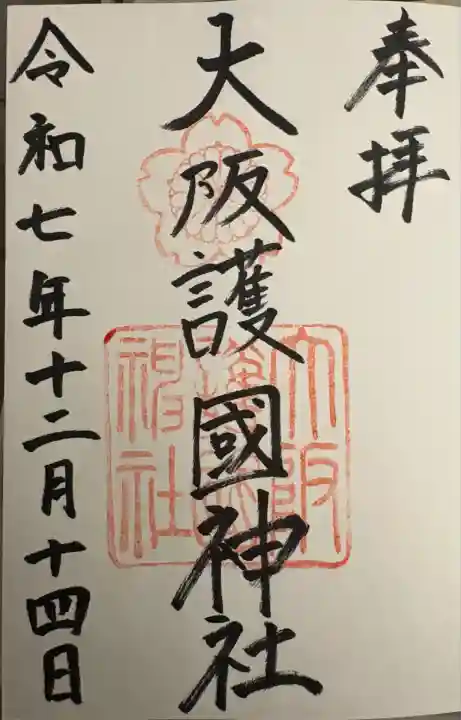 奉拝
大阪護國神社
大阪護國神社
令和七年十二月十四日